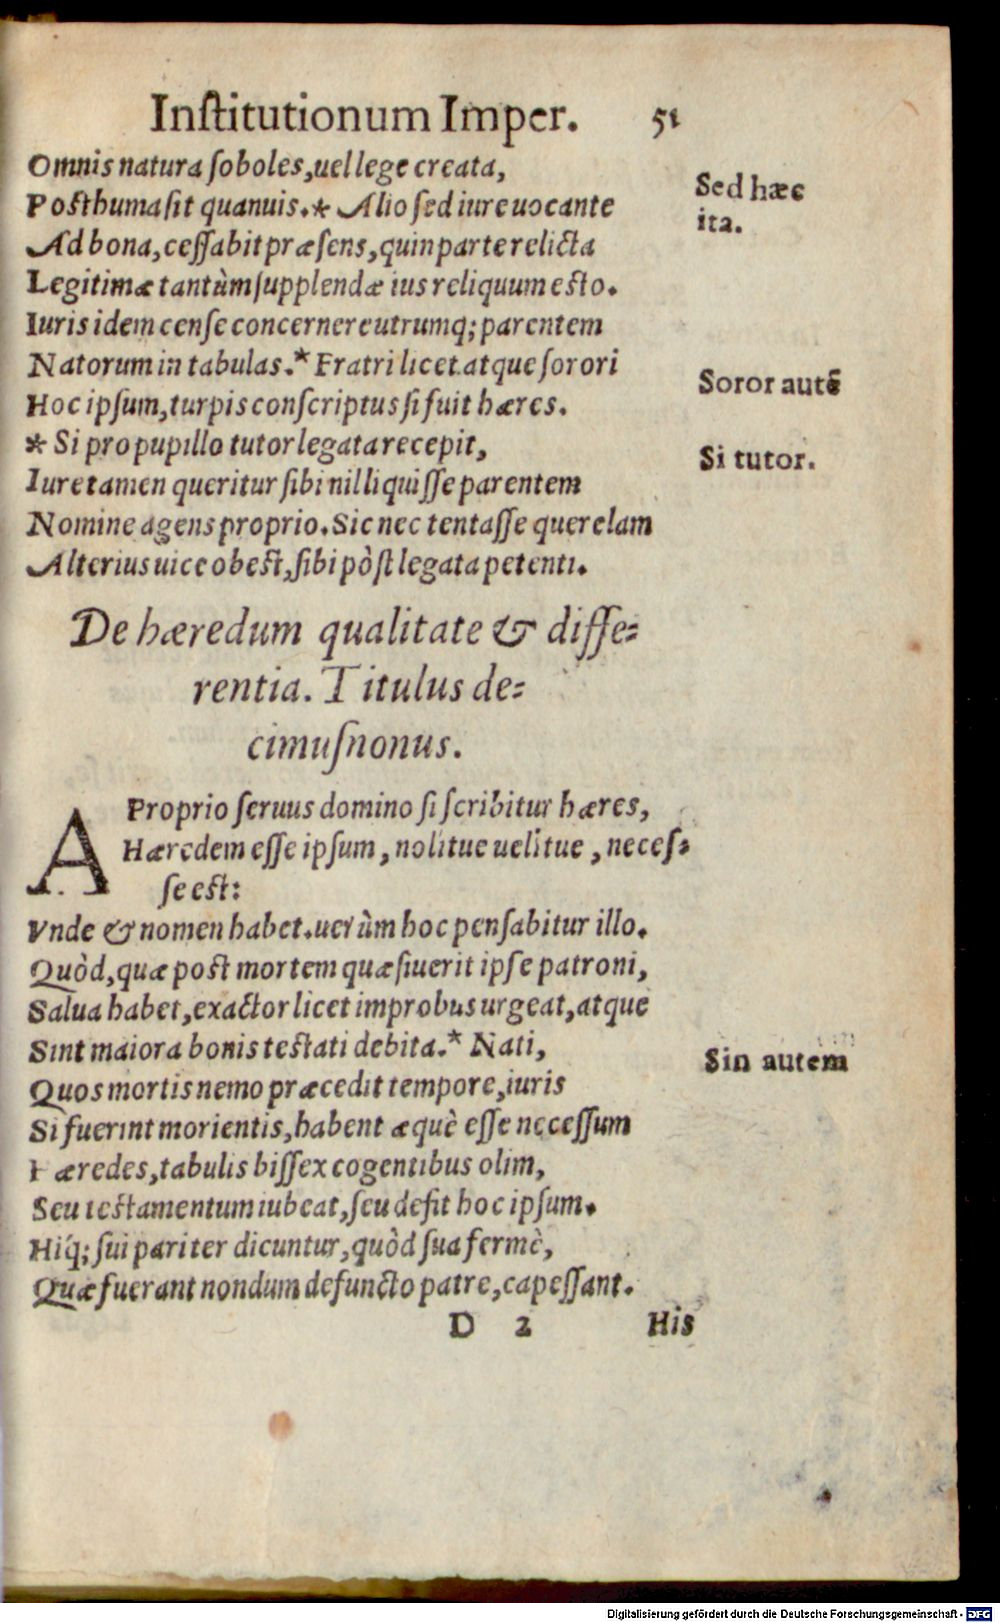 Inſtitutionum Imper. 51
Omnis natura ſoboles, uel lege creata,
Poſthuma ſit quanuis.* Alio ſed iure uocante
Sed hæc
ita.
Ad bona, ceſſabit præſens, quin parte relicta
Legitimæ tantùm ſupplendæ ius reliquum eſto.
Iuris idem cenſe concernere utrumq; parentem
Natorum in tabulas.* Fratri licet atque ſorori
Soror autẽ
Hoc ipſum, turpis conſcriptus ſi fuit hæres.
* Si pro pupillo tutor legata recepit,
Si tutor.
Iure tamen queritur ſibi nil liquiſſe parentem
Nomine agens proprio. Sic nec tentaſſe querelam
Alterius uice obeſt, ſibi pòſt legata petenti.
De hæredum qualitate & diffe=
rentia. Titulus de=
cimuſnonus.
A Proprio ſeruus domino ſi ſcribitur hæres,
Hæredem eſſe ipſum, nolitue uelitue, neceſ=
ſe eſt:
Vnde & nomen habet. uerùm hoc penſabitur illo.
Quòd, quæ poſt mortem quæſiuerit ipſe patroni,
Salua habet, exactor licet improbus urgeat, atque
Sint maiora bonis teſtati debita.* Nati,
Sin autem
Quos mortis nemo præcedit tempore, iuris
Si fuerint morientis, habent æquè eſſe neceſſum
Hæredes, tabulis biſſex cogentibus olim,
Seu teſtamentum iubeat, ſeu deſit hoc ipſum.
Hiq́; ſui pariter dicuntur, quòd ſua fermè,
Quæ fuerant nondum defuncto patre, capeſſant.
D 2 His
Digitalisierung gefördert durch die Deutsche Forschungsgemeinschaft - DFG